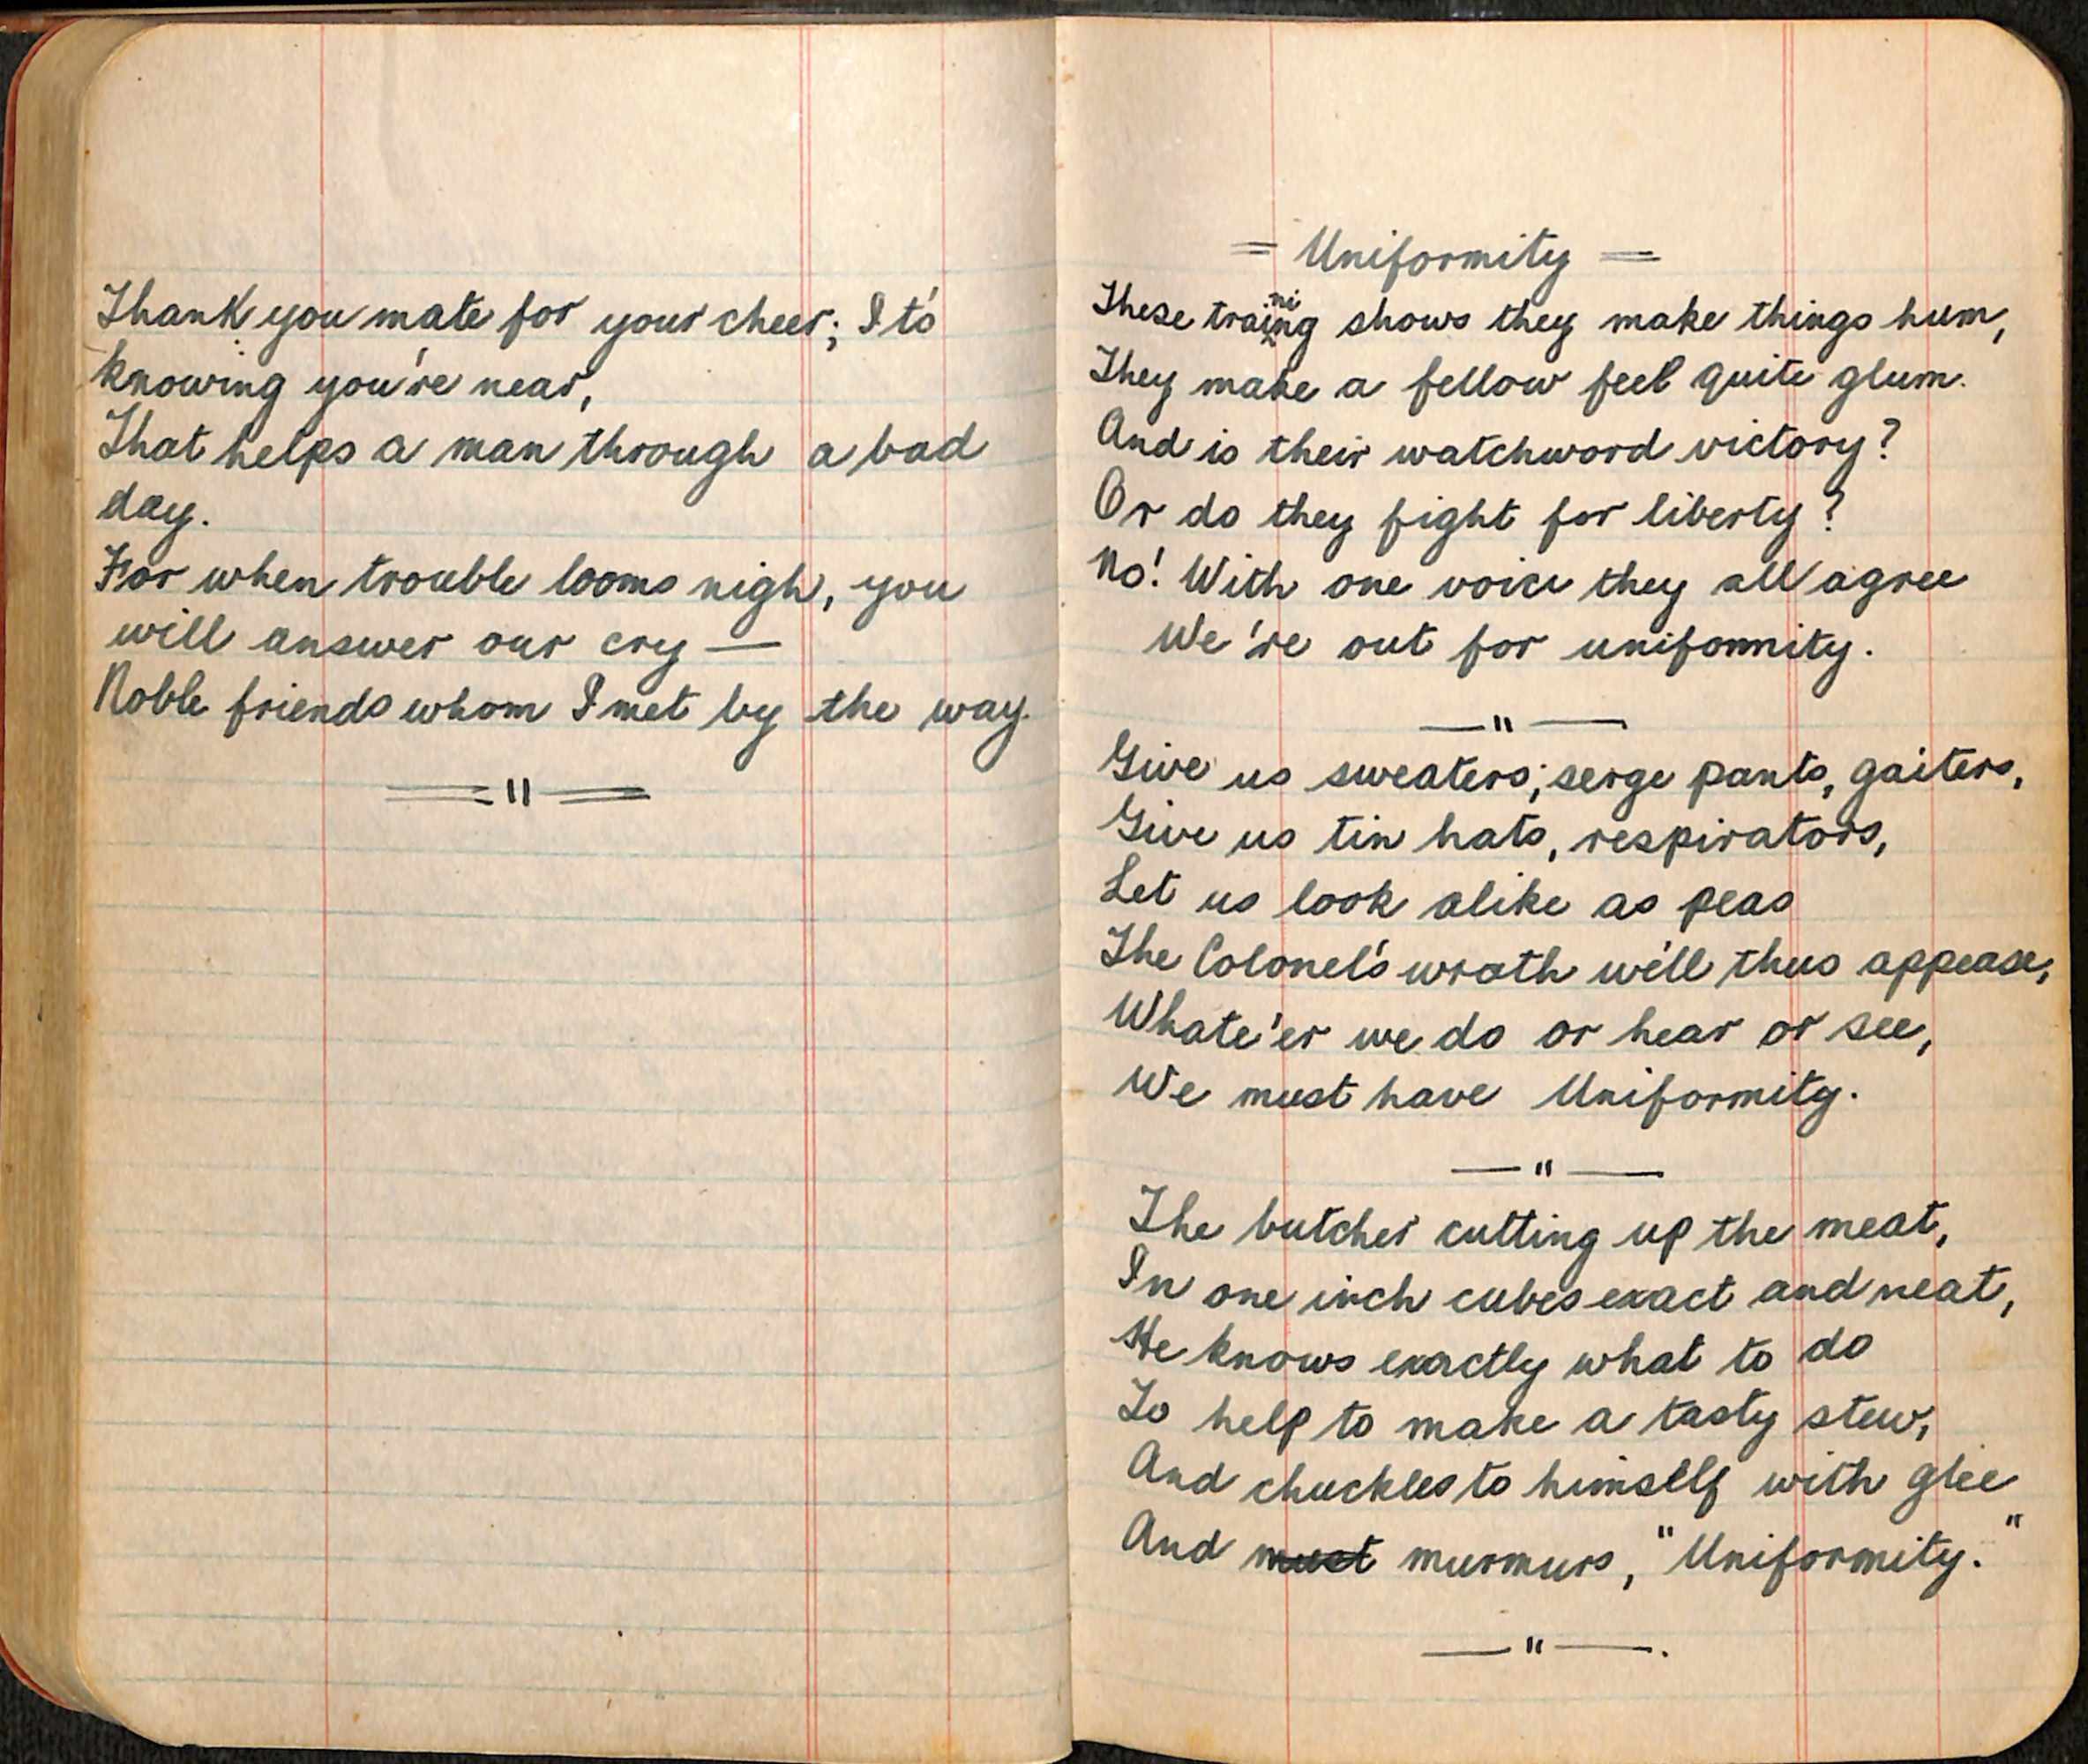 Thank you mate for your cheer; It's
knowing you're near,
That helps a man through a bad
day.
For when trouble looms nigh, you
will answer our cry —
Noble friends whom I met by the way.
= " =
= Uniformity =
These training shows they make things hum,
They make a fellow feel quite glum.
And is their watchword victory?
Or do they fight for liberty?
No! With one voice they all agree
We're out for uniformity.
— " —
Give us sweaters, serge pants, gaiters,
Give us tin hats, respirators,
Let us look alike as peas
The Colonel's wrath we'll thus appease,
Whate'er we do or hear or see,
We must have Uniformity.
— " —
The butcher cutting up the meat,
In one inch cubes exact and neat,
He knows exactly what to do
To help to make a tasty stew,
And chuckles to himself with glee
And must murmurs, "Uniformity."
— " —.